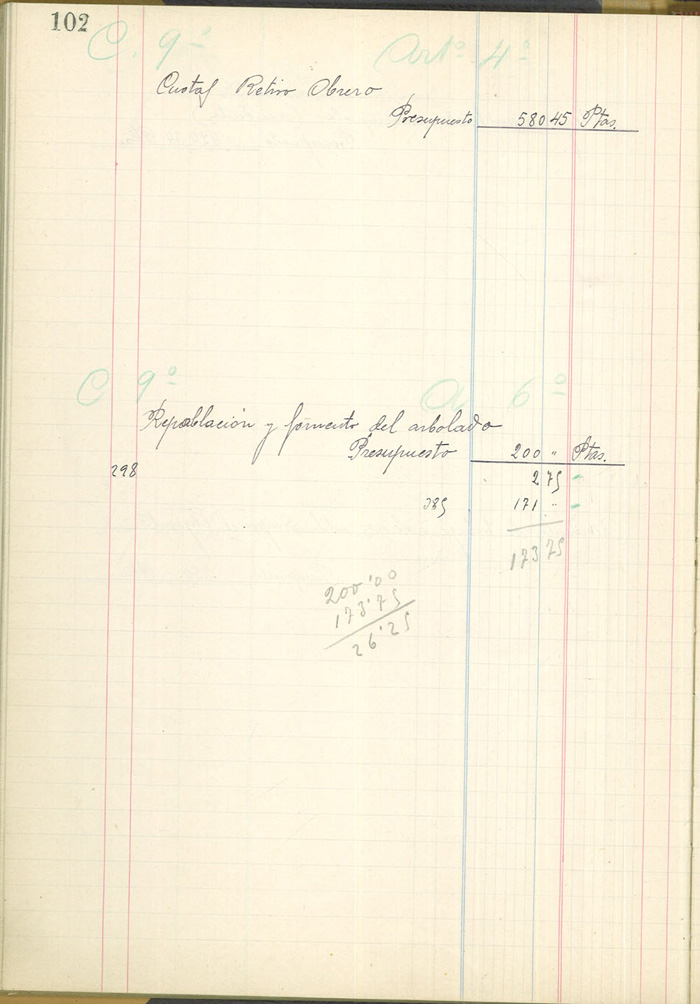 102
C. 9º Artº 4º
Custas Retiro Obrero
Presupuesto 580 45 Ptas.
C 9º 6º
Repoblación y fomento del arbolado
Presupuesto 200 " Ptas.
298 2 75 "
385 171 " "
173 75
200'00
173'75
26'25